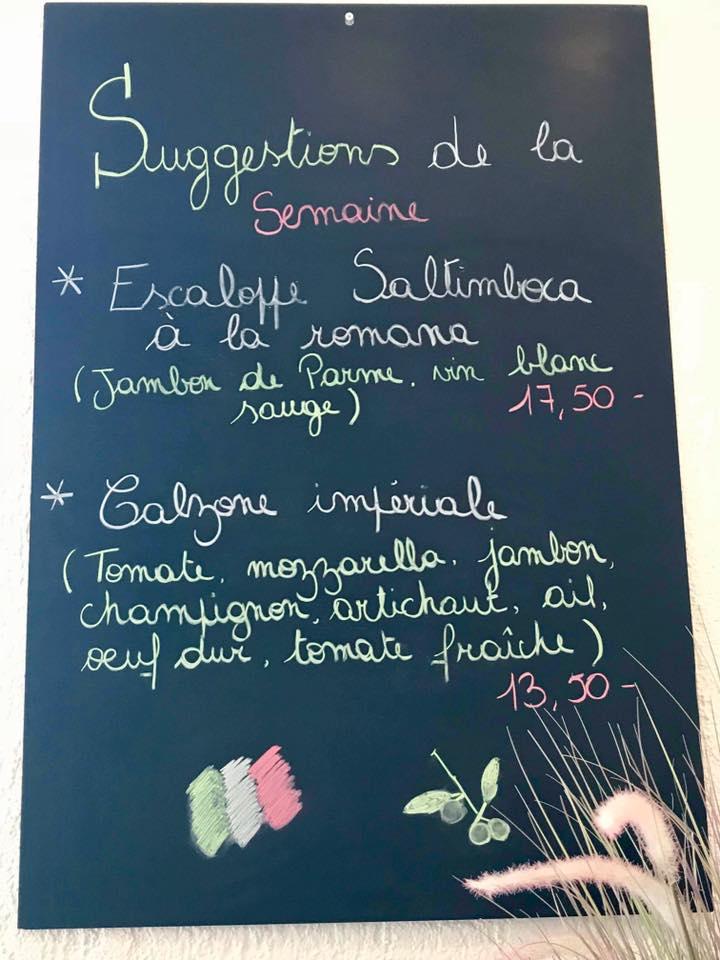 Suggestions de la
Semaine
* Escaloppe Saltimboca
à la romana
(Jambon de Parme, vin blanc
sauge) 17,50-
* Calzone impériale
(Tomate, mozzarella, jambon,
champignon, artichaut, ail,
oeuf dur, tomate fraîche)
13,50-